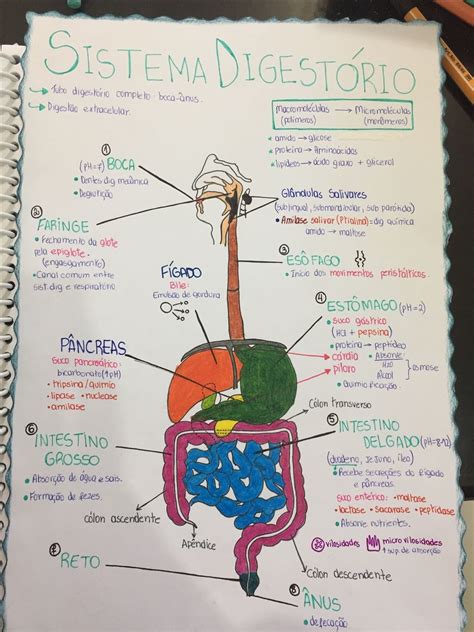 SISTEMA DIGESTÓRIO
→ Tubo digestório completo boca-ânus.
→ Digestão extracelular.
Macromoléculas → Micromoléculas
(polímeros) (monômeros)
* amido → glicose
* proteína → Aminoácidos
* lipídeos → ácido graxo + glicerol
①
(pH=7) BOCA
• Dentes dig mecânica
• Deglutição
Glândulas Salivares
(sublingual, submandibular, sub parótida)
• Amilase salivar (Ptialina) = dig química
amido → maltose
②
FARINGE
• Fechamento da glote
pela epiglote.
(engasgamento)
• Canal comum entre
sist. dig e respiratório
③
ESÔFAGO
• Início dos movimentos peristálticos.
FÍGADO
Bile:
Emulsão de gordura
④
ESTÔMAGO (pH=2)
• suco gástrico
(HCl + pepsina)
• proteína → peptídeo
cárdia
piloro
Absorve
H₂O
Álcool
osmose
• Quimificação.
PÂNCREAS
Suco pancreático:
bicarbonato (↑pH)
• tripsina/quimio
• lipase • nuclease
• amilase
Cólon transverso
⑤
INTESTINO
DELGADO (pH=8-12)
(duodeno, Jejuno, Íleo)
• Recebe secreções do fígado
e pâncreas.
suco entérico: • maltase
• lactase • sacarase • peptidase
• Absorve nutrientes.
vilosidades
microvilosidades
↑ sup. de absorção
⑥
INTESTINO
GROSSO
• Absorção de água e sais.
• Formação de fezes.
Cólon ascendente
Apêndice
Cólon descendente
⑦
RETO
⑧
ÂNUS
• defecação